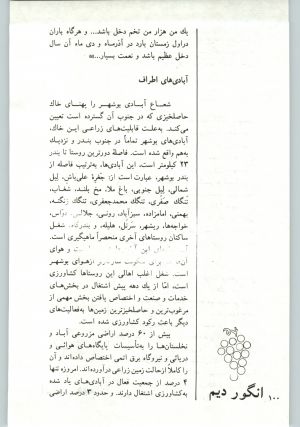 یك من هزار من تخم دخل باشد... و هرگاه باران
دراول زمستان بارد در آذرماه و دی ماه آن سال
دخل عظیم باشد و نعمت بسیار...»
آبادی‌های اطراف
شعاع آبادی بوشهر را پهنای خاك
حاصلخیزی که در جنوب آن گسترده است تعیین
می‌کند. به‌علت قابلیت‌های زراعی این خاك،
آبادی‌های بوشهر تماماً در جنوب بندر و نزدیك
به‌هم واقع شده است. فاصلهٔ دورترین روستا تا بندر
۲۳ کیلومتر است. این آبادی‌ها، به‌ترتیب فاصله از
بندر بوشهر، عبارت است از: جفرهٔ علی‌باش، لیل
شمالی، لیل جنوبی، باغ ملا، مخ بلند، شغاب،
تنگك صفری، تنگك محمدجعفری، تنگك زنگنه،
بهمنی، امامزاده، سبزآباد، رونی، جلالی،
خواجه‌ها، ریشهر، سرتل، هلیله، و بندرگاه. شغل
ساکنان روستاهای آخری منحصراً ماهیگیری است.
بوشهر
است. شغل اغلب اهالی این روستاها کشاورزی
است، امّا از یك دهه پیش اشتغال در بخش‌های
خدمات و صنعت و اختصاص یافتن بخش مهمی از
مرغوب‌ترین و حاصلخیزترین زمین‌ها به‌فعالیت‌های
دیگر باعث رکود کشاورزی شده است.
بیش از ۶۰ درصد اراضی مزروعی آباد و
نخلستان‌ها را به‌تأسیسات پایگاه‌های هوائی و
دریائی و نیروگاه برق اتمی اختصاص داده‌اند و آن
را کاملاً از حالت زمین زراعی درآورده‌اند. امروزه تنها
۴ درصد از جمعیت فعال در آبادی‌های یاد شده
به‌کشاورزی اشتغال دارند. و حدود ۳ درصد اراضی
۱۰۰ انگور دیم